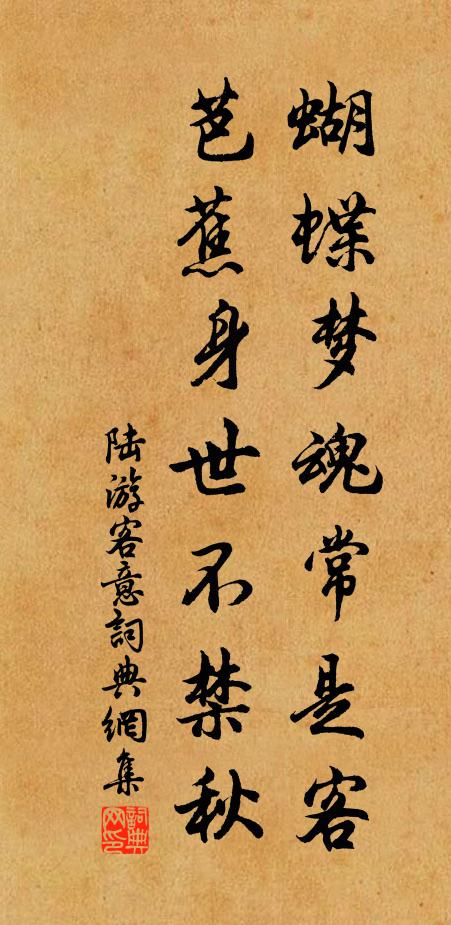 蝴蝶梦魂常是客
芭蕉身世不禁秋
陆游客意詞典網集
詞典网印